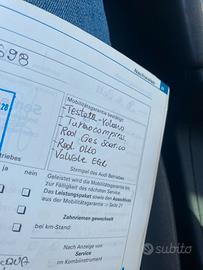 698
Nachweise
Mobilitätsgarantie bestätigt:
- Testata - Volano
- Turbocompres.
- Rad Gas Scarico
- Rad Olio
- Valvole EGR
Stempel des Audi Betriebes
triebes
Geleistet wird die Mobilitätsgarantie bis
zur Fälligkeit des nächsten Service.
Das Leistungspaket sowie den Ausschluss
aus der Mobilitätsgarantie ⇒ Seite 21
ja nein
Zahnriemen gewechselt
bei km-Stand:
Nach Anzeige von
Service
im Kombiinstrument
ja nein
subito